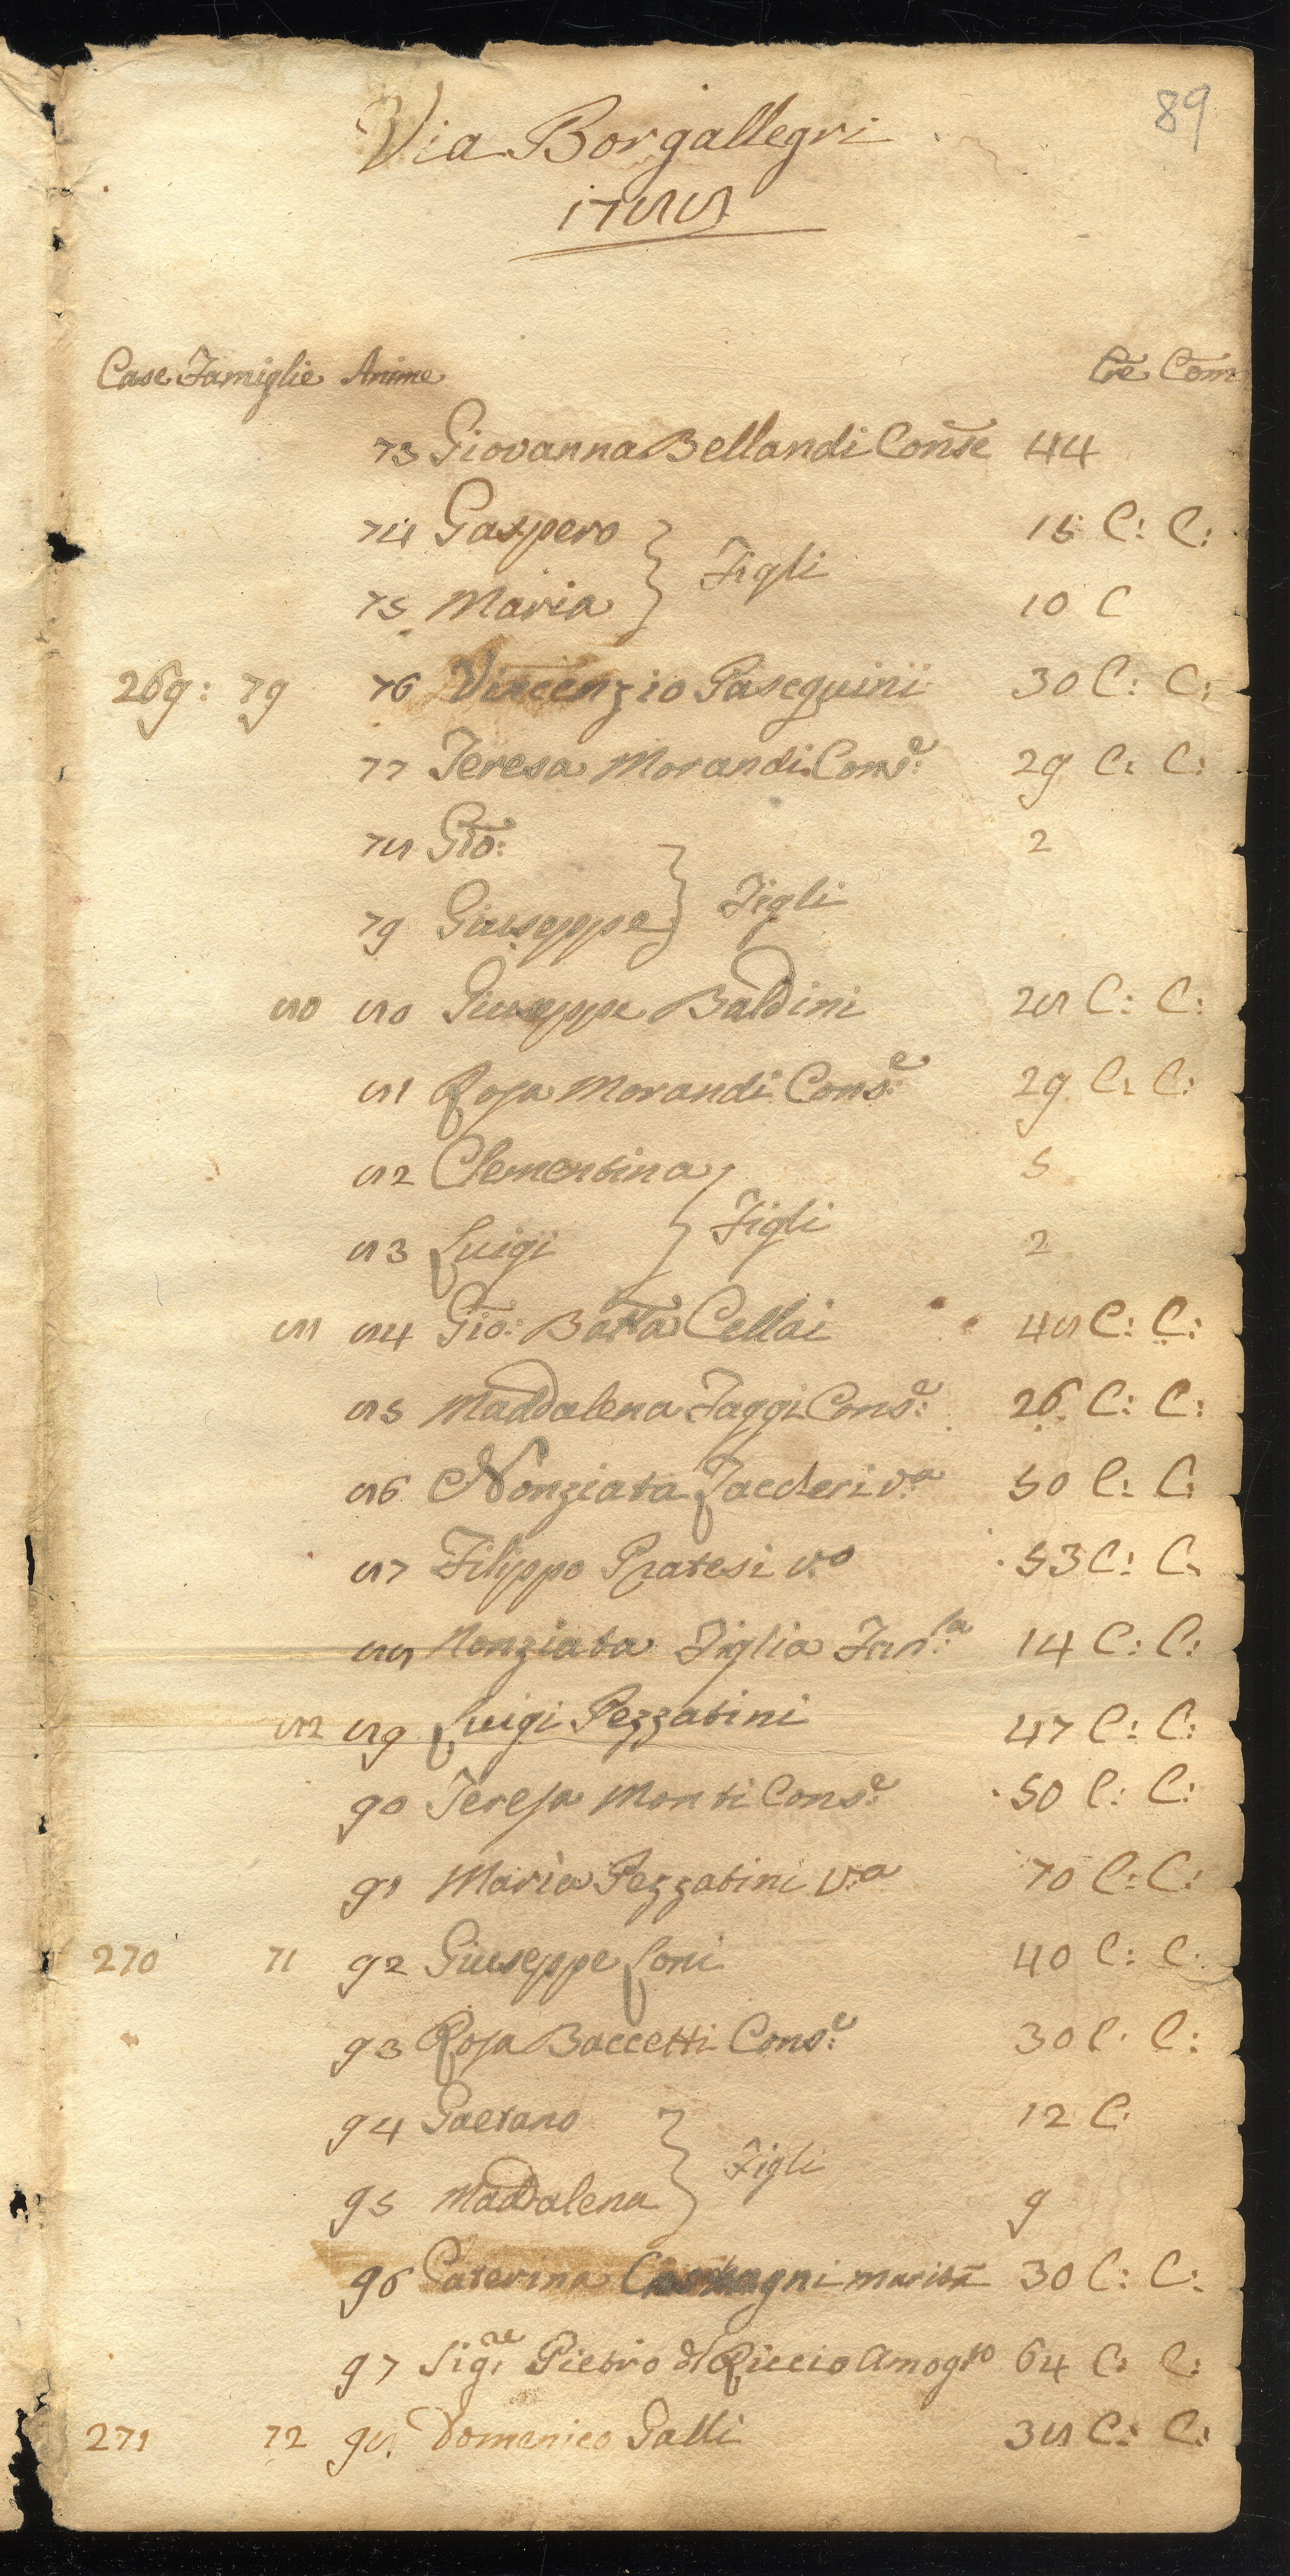 89
Via Borgallegri
1788
Case Famiglie Anime Cre Com
73 Giovanna Bellandi Conse 44
74 Gaspero 15 C: C:
Figli
75 Maria 10 C
269: 79 76 Vincenzio Paseguini 30 C: C:
77 Teresa Morandi Cons.e 29 C: C:
78 Gio: 2
79 Giuseppe Figli
80 80 Giuseppe Baldini 28 C: C:
81 Rosa Morandi Cons.e 29 C: C:
82 Clementina 5
Figli
83 Luigi 2
81 84 Gio: Batta Cellai 48 C: C:
85 Maddalena Faggi Cons.e 26 C: C:
86 Nonziata v.a 50 C: C:
87 Filippo Pratesi v.o 53 C: C:
88 Nonziata Figlia Fan.la 14 C: C:
82 89 Luigi Pezzatini 47 C: C:
90 Teresa Monti Cons.e 50 C: C:
91 Maria Pezzatini v.a 70 C: C:
270 71 92 Giuseppe Loni 40 C: C:
93 Rosa Baccetti Cons.e 30 C: C:
94 Gaetano 12 C:
Figli
95 Maddalena 9
96 Caterina marita 30 C: C:
97 Sig.re Pietro d Riccio Amog.to 64 C: C:
271 72 98 Domenico Galli 38 C: C: